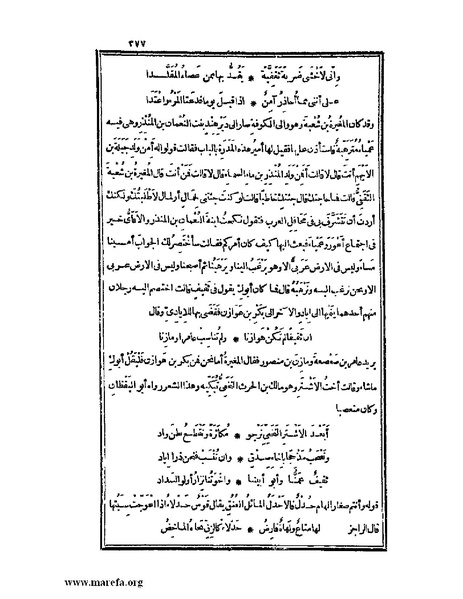 ٣٧٧
وانى لاخشى ضربة ثقفية * يقد بهما ممن عصاه المقلدا
على أننى مما أحاذر آمن * اذا قيل يوما قد عتا المرء واعتدا
وقد كان المغيرة بن شعبة وهو والى الكوفة سار الى دير هند بنت النعمان بن المنذر وهى فيه
عمياء مترهبة فاستأذن عليها فقيل لها أمير هذه المدرة بالباب فقالت قولوا له أمن ولد جبلة بن
الايهم أنت قال لا قالت أفمن ولد المنذر بن ماء السماء قال لا قالت فمن أنت قال المغيرة بن شعبة
الثقفى قالت فما حاجتك قال جئتك خاطبا قالت لو كنت جئتنى لجمال أو لمال لاطلبتك ولكنك
أردت أن تتشرف بى فى محافل العرب فتقول نكحت ابنة النعمان بن المنذر والا فأى خير
فى اجتماع أعور وعمياء فبعث اليها كيف كان أمركم فقالت سأختصر لك الجواب أمسينا
مساء وليس فى الارض عربى الا وهو يرغب الينا ويرهبنا ثم أصبحنا وليس فى الارض عربى
الا ونحن نرغب اليه ونرهبه قال فما كان أبوك يقول فى ثقيف قالت اختصم اليه رجلان
منهم أحدهما ينميها الى اياد والآخر الى بكر بن هوازن فقضى بها للايادى وقال
ان ثقيفا لم تكن هوازنا * ولم تناسب عامرا ومازنا
يريد عامر بن صعصعة ومازن بن منصور فقال المغيرة أما نحن فمن بكر بن هوازن فليقل أبوك
ما شاء وقالت أخت الاشتر وهو مالك بن الحرث النخعى تبكيه وهذا الشعر رواه أبو اليقظان
وكان متعصبا
أبعد الاشتر النخعى نرجو * مكاثرة ونقطع بطن واد
ونصحب مذحجا باخاء صدق * وان ننسب فنحن ذرا اياد
ثقيف عمنا وأبو أبينا * واخوتنا نزار أولو السداد
قوله وأنتم صغار الهام حدل فالاحدل المائل العنق يقال قوس حدلاء اذا اعوجت سيتها
قال الراجز لها متاع ولهاة فارض * حدلاء كالزق نحاه الماخض
www.marefa.org